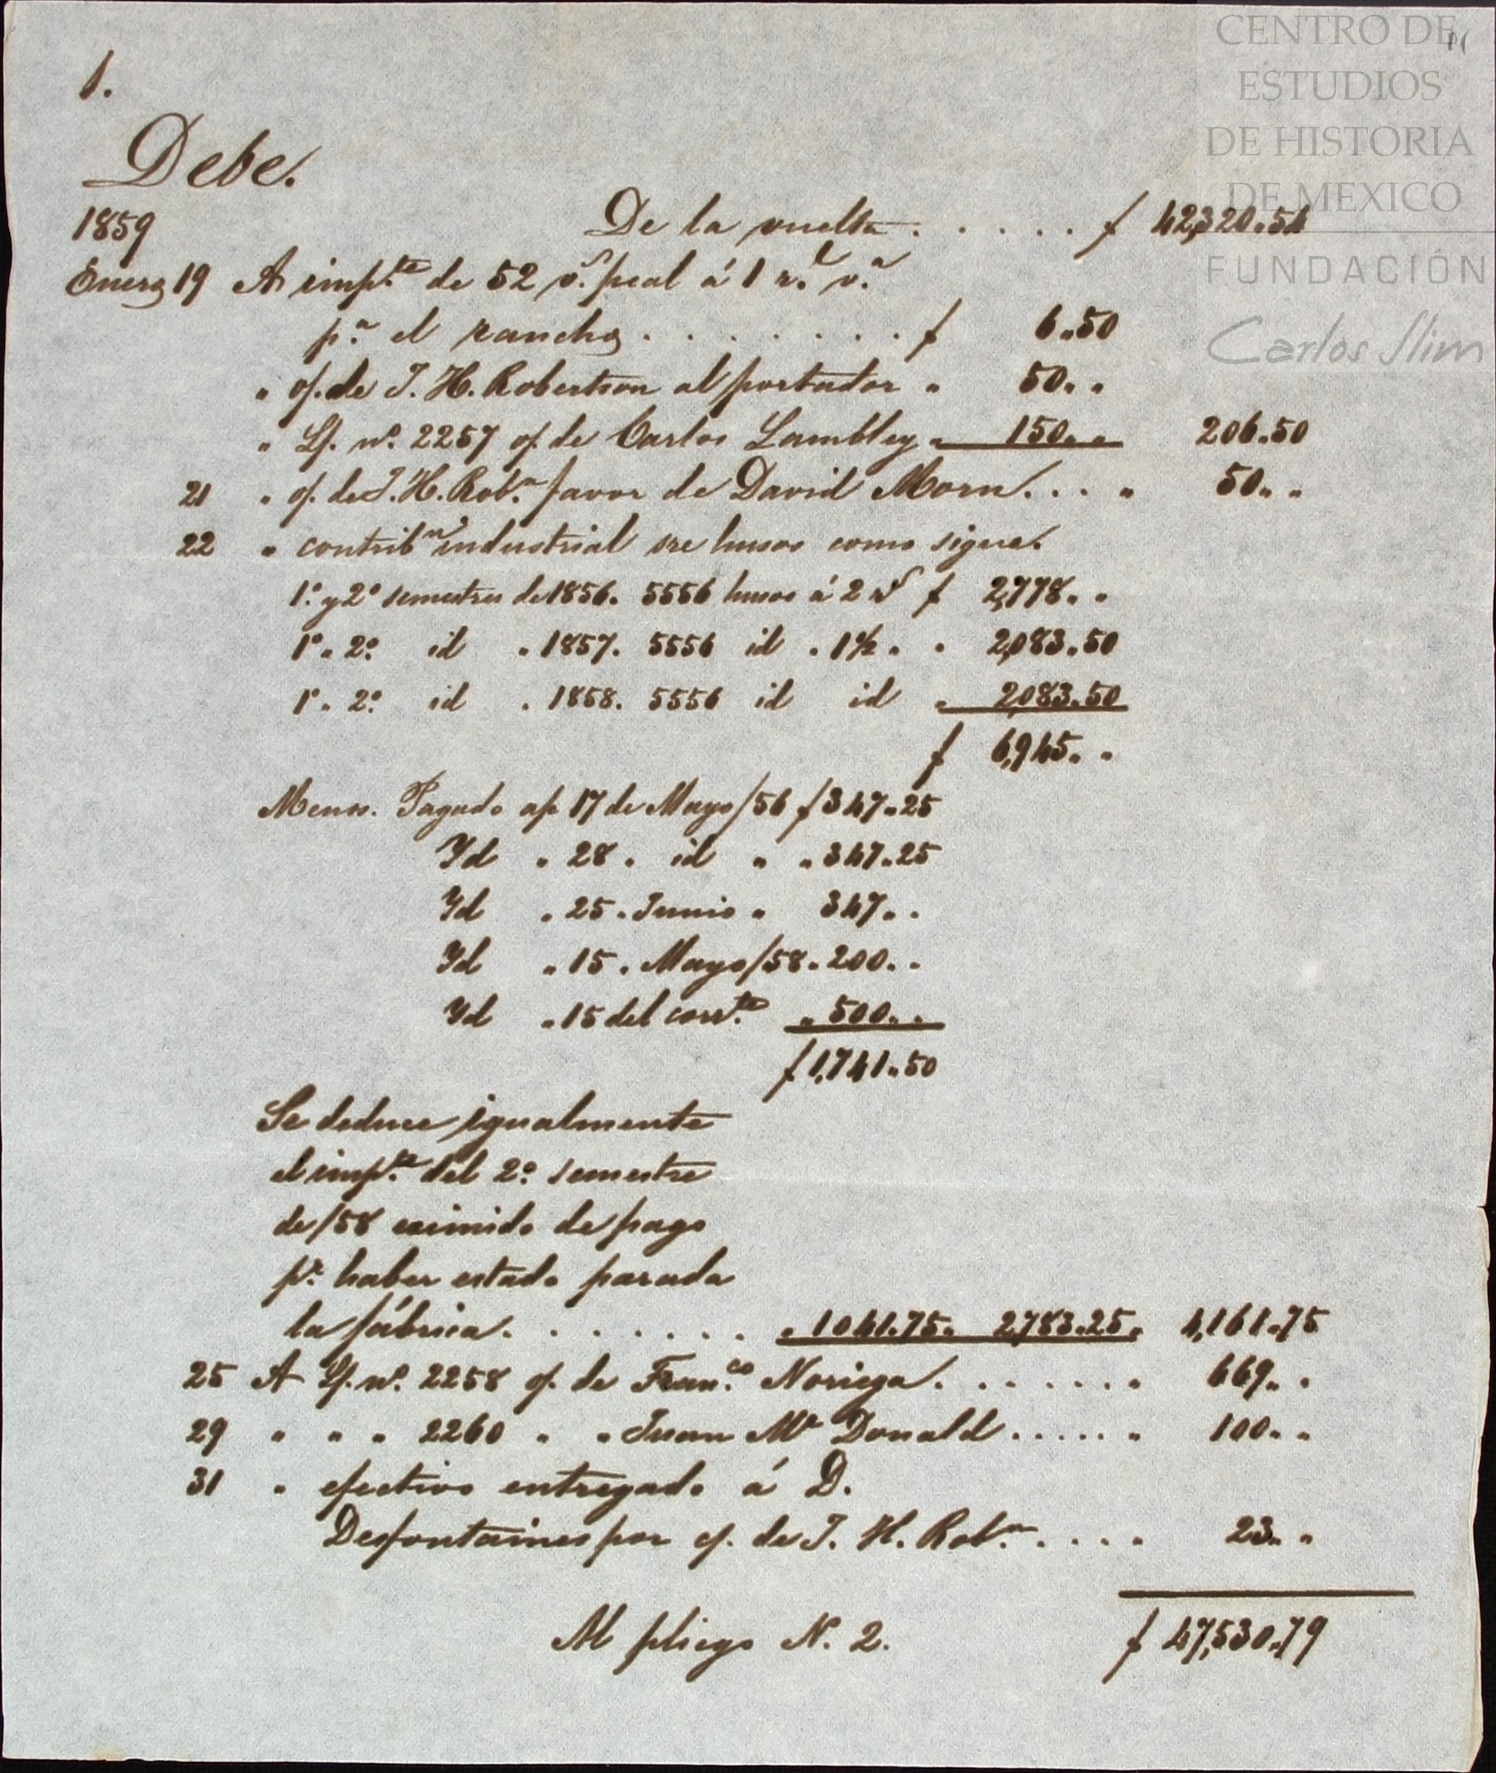 CENTRO DE
ESTUDIOS
DE HISTORIA
DE MEXICO
FUNDACIÓN
Carlos Slim
1.
Debe.
1859 De la vuelta . . . . . $ 42,320.54
Enero 19 A imp.te de 52 v.s peal á 1 r.l v.a
p.a el rancho . . . . . . . . $ 6.50
" of. de J. H. Robertson al portador " 50. "
" Lf. no. 2257 of. de Carlos Lambley " 150. " 206.50
21 " of. de J. H. Rob.n favor de David Morn . . . " 50. "
22 " contrib.n industrial sre husos como sigue.
1.o y 2.o semestres de 1856. 5556 husos á 2 r.s $ 2,778. "
1.o " 2.o id " 1857. 5556 id " 1½ " " 2,083.50
1.o " 2.o id " 1858. 5556 id id " 2,083.50
$ 6,945. "
Menos. Pagado en 17 de Mayo/56 $ 347.25
Yd " 28 " id " " 347.25
Yd " 25 " Junio " 347. "
Yd " 15 " Mayo/58 " 200. "
Yd " 15 del corr.te " 500. "
$ 1,741.50
Se deduce igualmente
el imp.te del 2.o semestre
de/58 eximido de pago
p.r haber estado parada
la fábrica . . . . . . . " 1041.75. 2,783.25. 4,161.75
25 A Lf. no. 2258 of. de Fran.co Noriega . . . . . . " 669. "
29 " " " 2260 " " Juan Mc Donald . . . . . " 100. "
31 " efectivo entregado á D.
Desfontaines por of. de J. H. Rob.n . . . . 23. "
Al pliego N. 2. $ 47,530.79